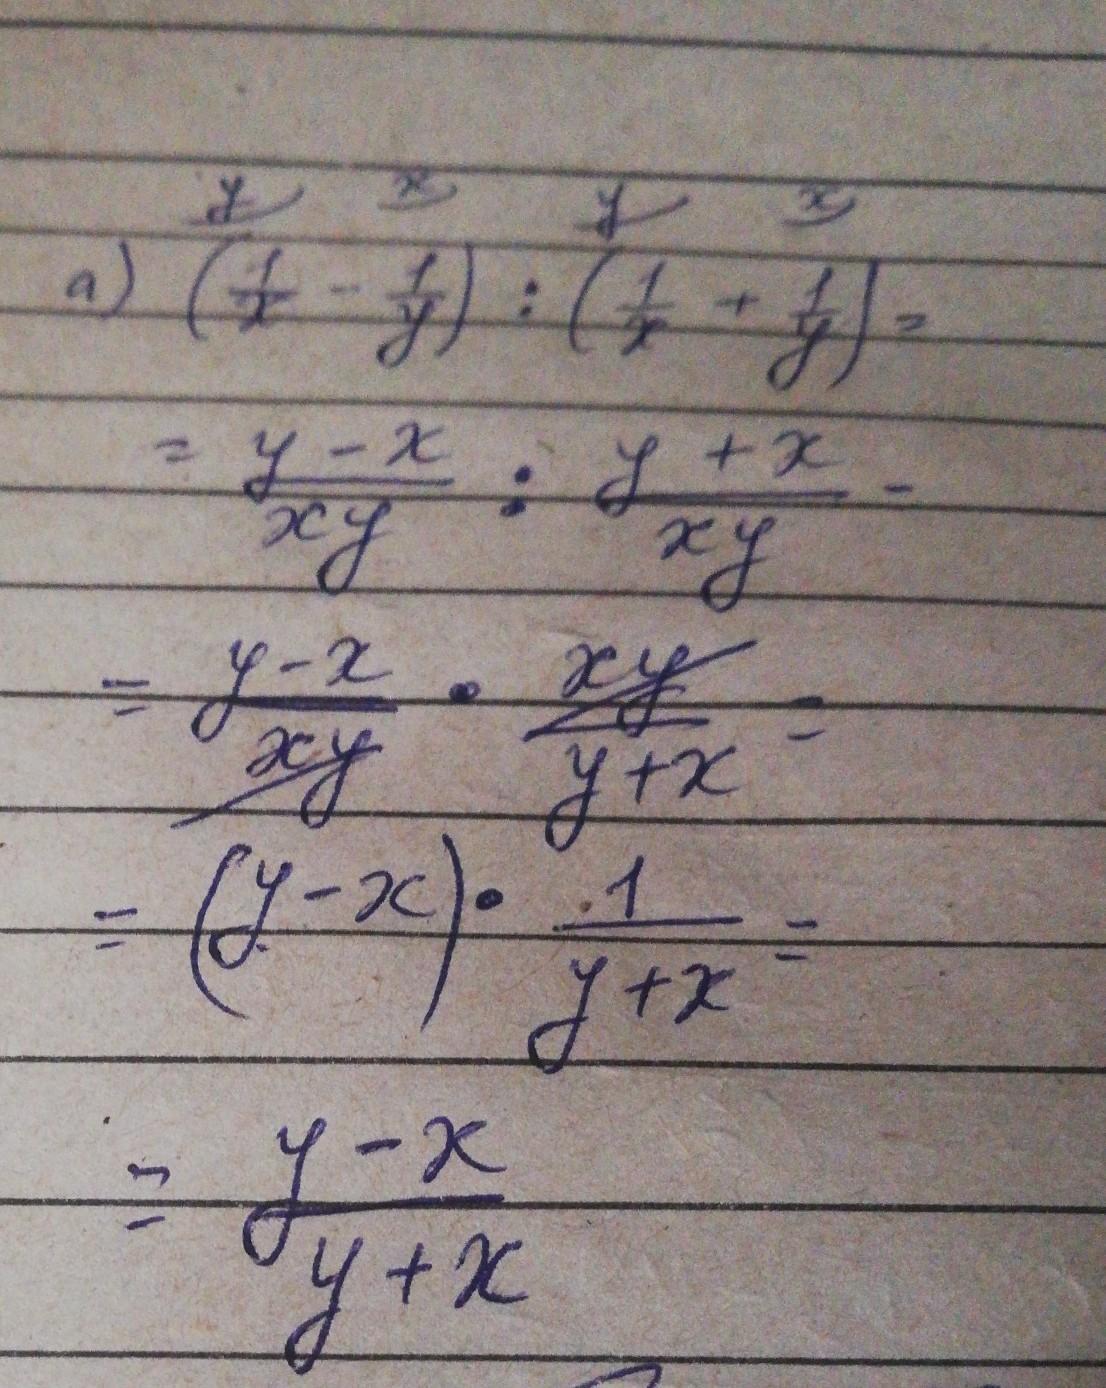 y x y x
a) (1/x - 1/y) : (1/x + 1/y) =
= y - x / xy : y + x / xy -
= y - x / xy • xy / y + x =
= (y - x) • 1 / y + x =
= y - x / y + x